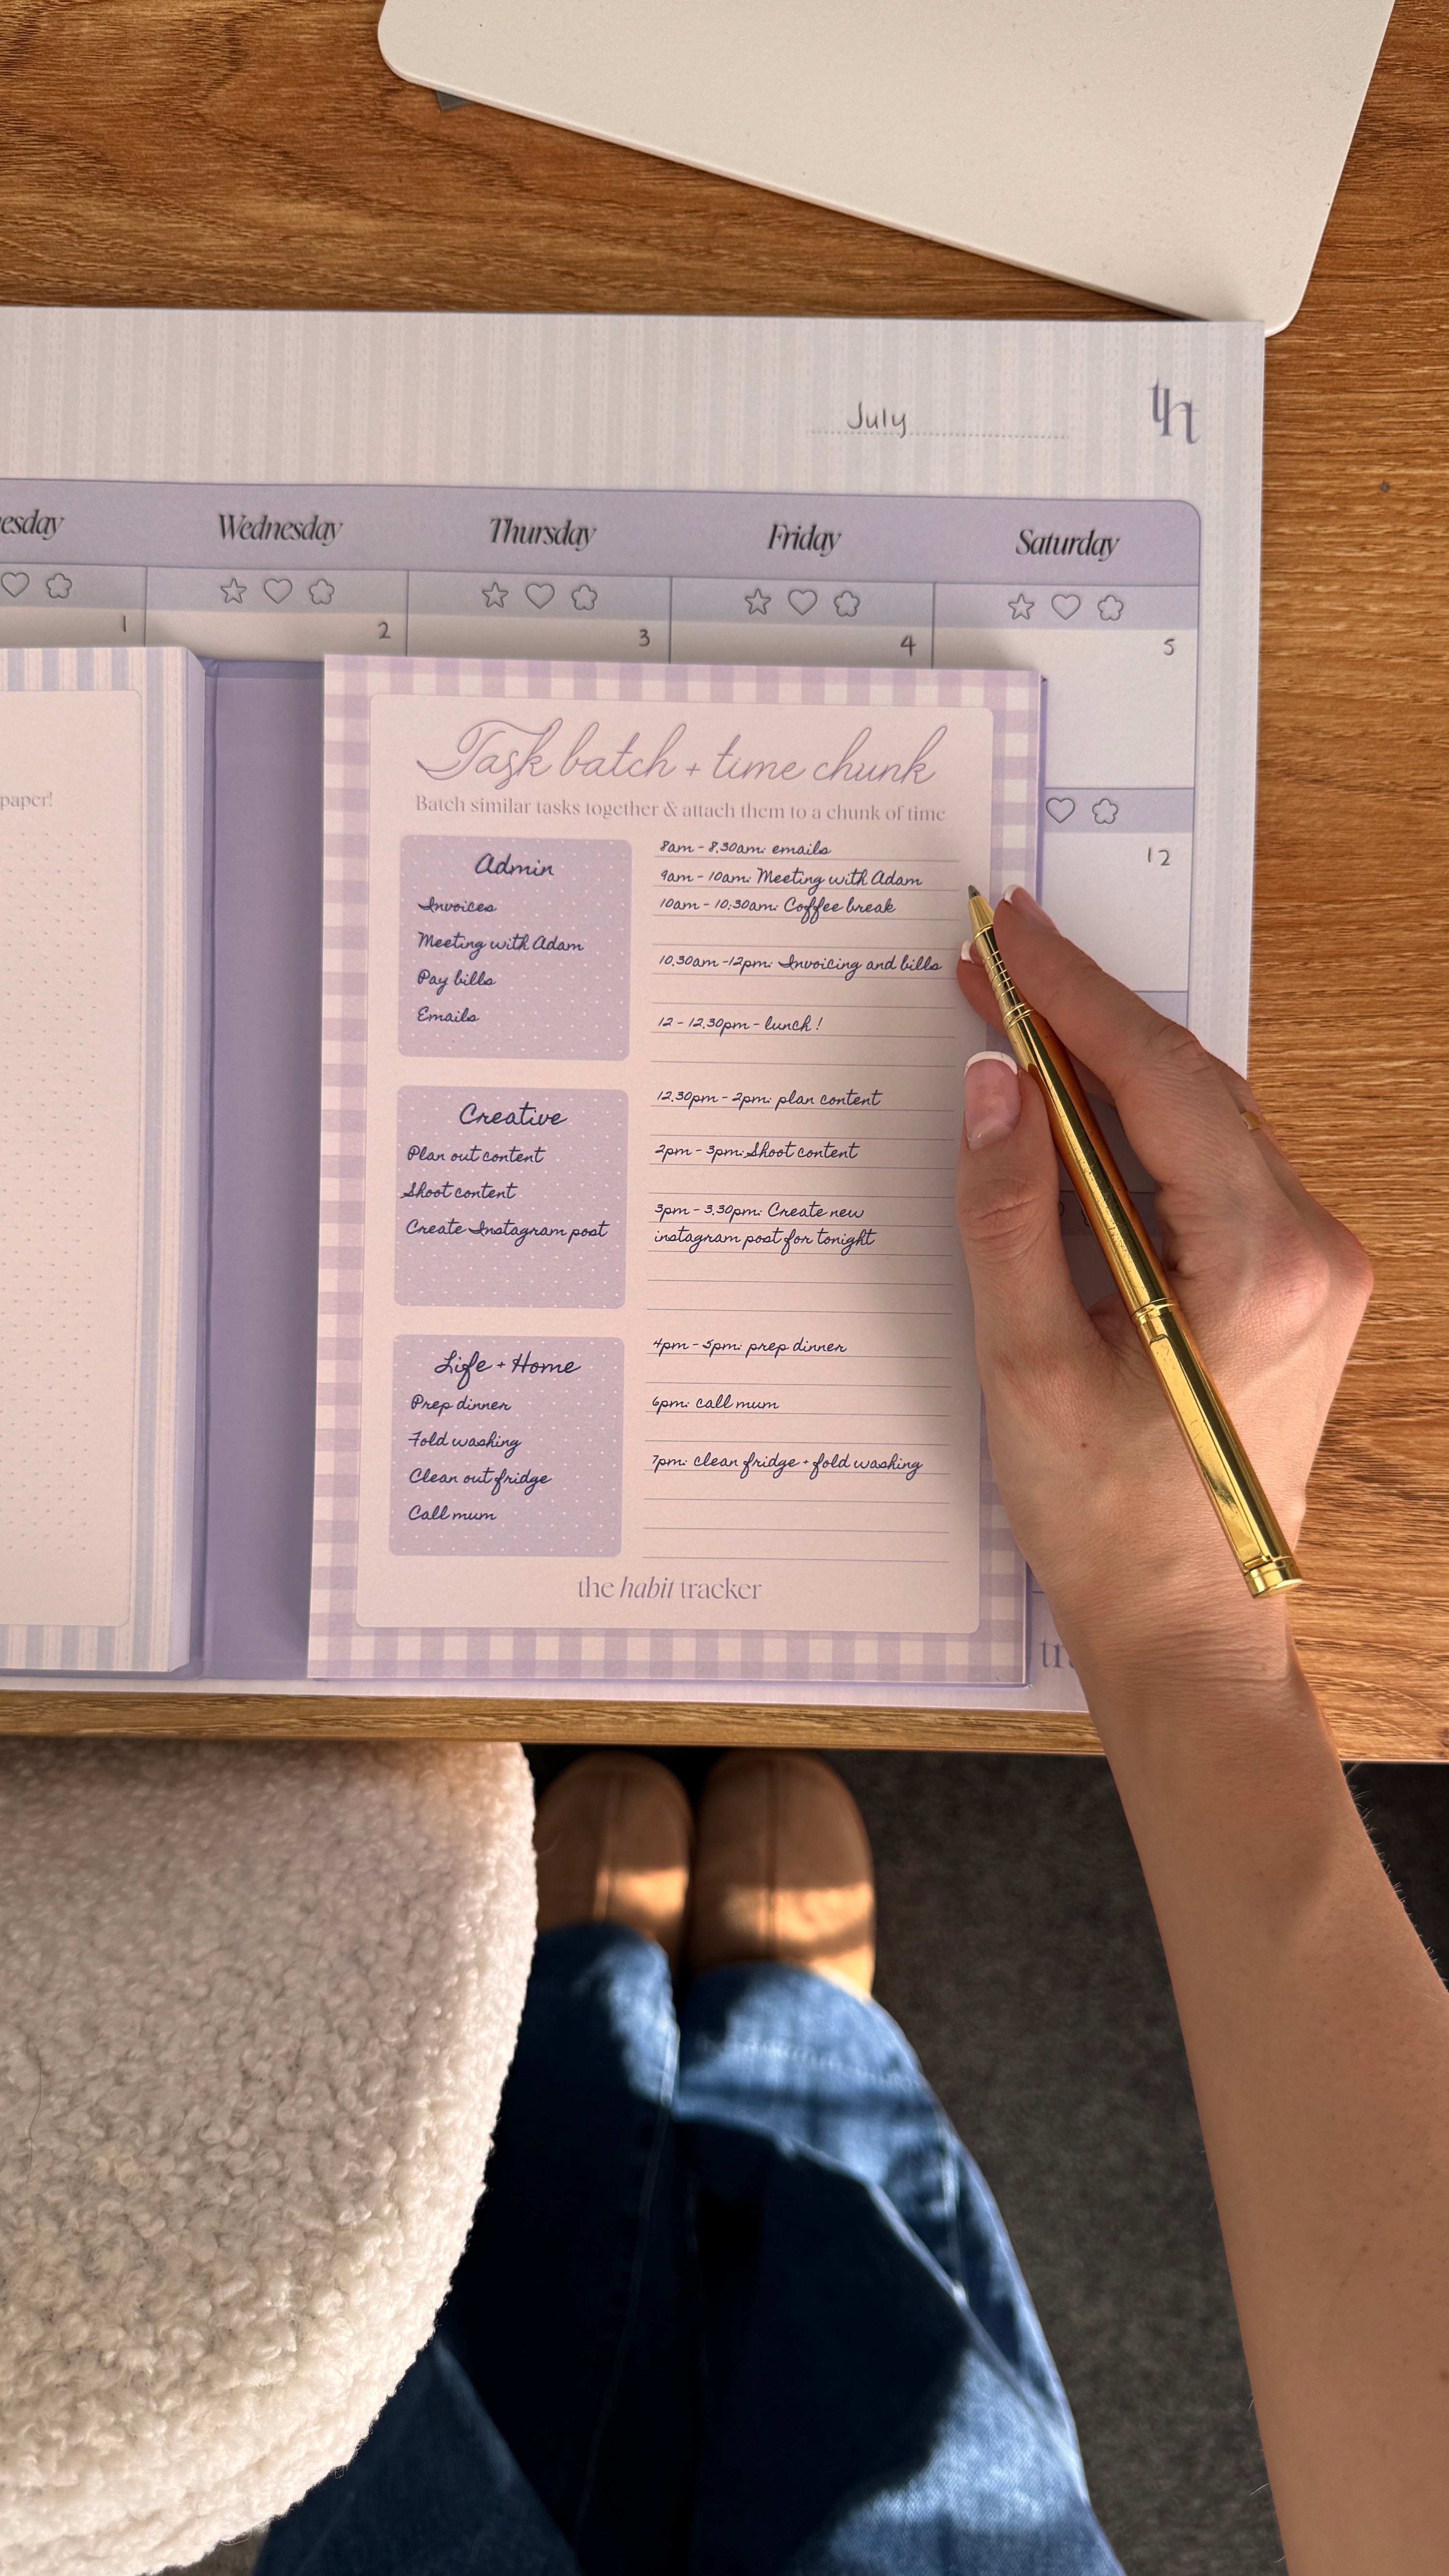 July
th
Wednesday
Thursday
Friday
Saturday
1
2
3
4
5
12
paper!
Task batch + time chunk
Batch similar tasks together & attach them to a chunk of time
Admin
Invoices
Meeting with Adam
Pay bills
Emails
Creative
Plan out content
Shoot content
Create Instagram post
Life + Home
Prep dinner
Fold washing
Clean out fridge
Call mum
8am - 8.30am: emails
9am - 10am: Meeting with Adam
10am - 10:30am: Coffee break
10.30am -12pm: Invoicing and bills
12 - 12.30pm - lunch!
12.30pm - 2pm: plan content
2pm - 3pm: Shoot content
3pm - 3.30pm: Create new
instagram post for tonight
4pm - 5pm: prep dinner
6pm: call mum
7pm: clean fridge + fold washing
the habit tracker